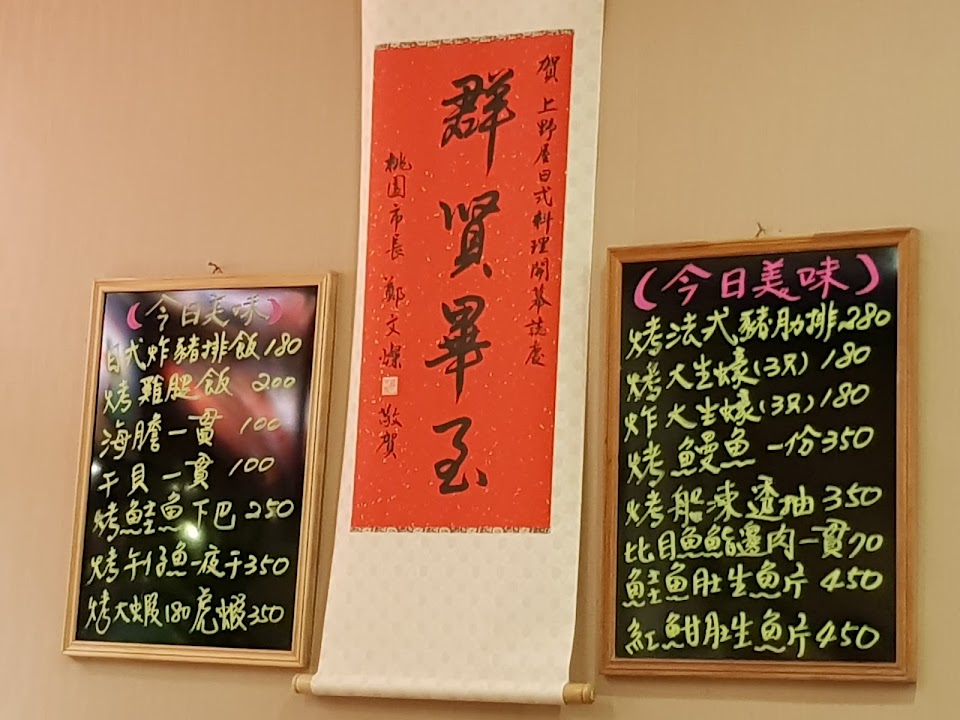 (今日美味)
日式炸豬排飯 180
烤雞腿飯 200
海膽一貫 100
干貝一貫 100
烤鮭魚下巴 250
烤午仔魚一夜干 350
烤大蝦 180 虎蝦 350
賀 上野屋日式料理開幕誌慶
群賢畢至
桃園市長 鄭文燦 敬賀
(今日美味)
烤法式豬肋排 280
烤大生蠔(3只) 180
炸大生蠔(3只) 180
烤鰻魚一份 350
烤船凍透抽 350
比目魚鮨邊肉一貫 70
鮭魚肚生魚片 450
紅魽肚生魚片 450